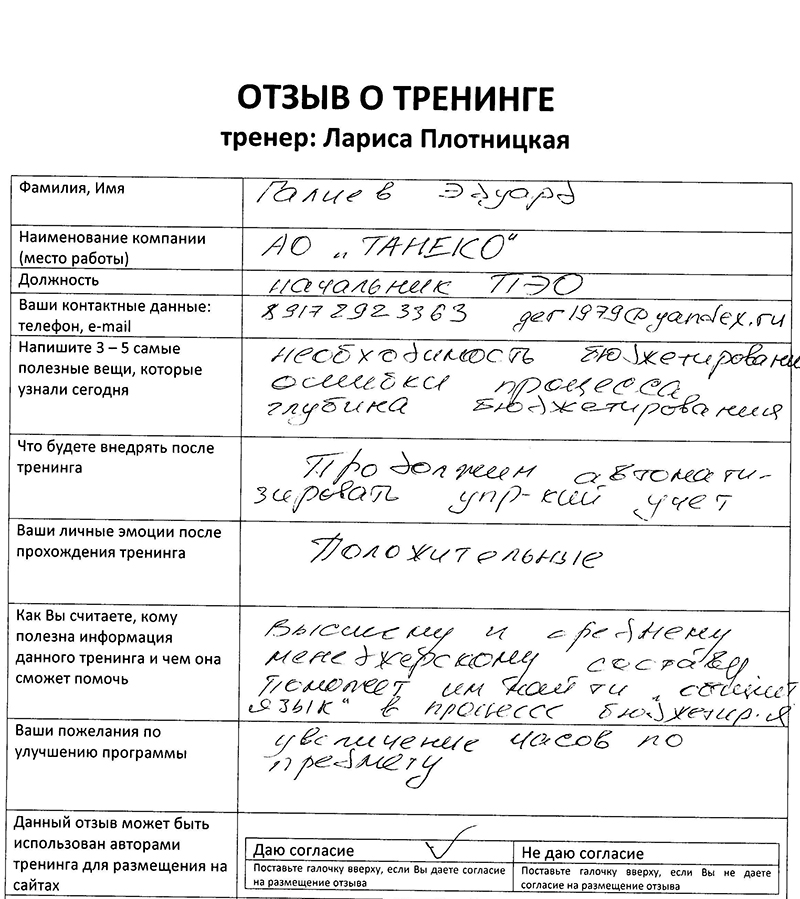 ОТЗЫВ О ТРЕНИНГЕ
тренер: Лариса Плотницкая
Фамилия, Имя
Галиев Эдуард
Наименование компании
(место работы)
АО „ТАНЕКО“
Должность
начальник ПЭО
Ваши контактные данные:
телефон, e-mail
8917 292 3363 ger1979@yandex.ru
Напишите 3 – 5 самые
полезные вещи, которые
узнали сегодня
необходимость бюджетировани
ошибки процесса
глубина бюджетирования
Что будете внедрять после
тренинга
Продолжим автомати-
зировать упр-кий учет
Ваши личные эмоции после
прохождения тренинга
Положительные
Как Вы считаете, кому
полезна информация
данного тренинга и чем она
сможет помочь
высшему и среднему
менеджерскому составу
поможет им найти „общий
язык“ в процессе бюджетир.я
Ваши пожелания по
улучшению программы
увеличение часов по
предмету
Данный отзыв может быть
использован авторами
тренинга для размещения на
сайтах
Даю согласие
Поставьте галочку вверху, если Вы даете согласие
на размещение отзыва
Не даю согласие
Поставьте галочку вверху, если Вы не даете
согласие на размещение отзыва